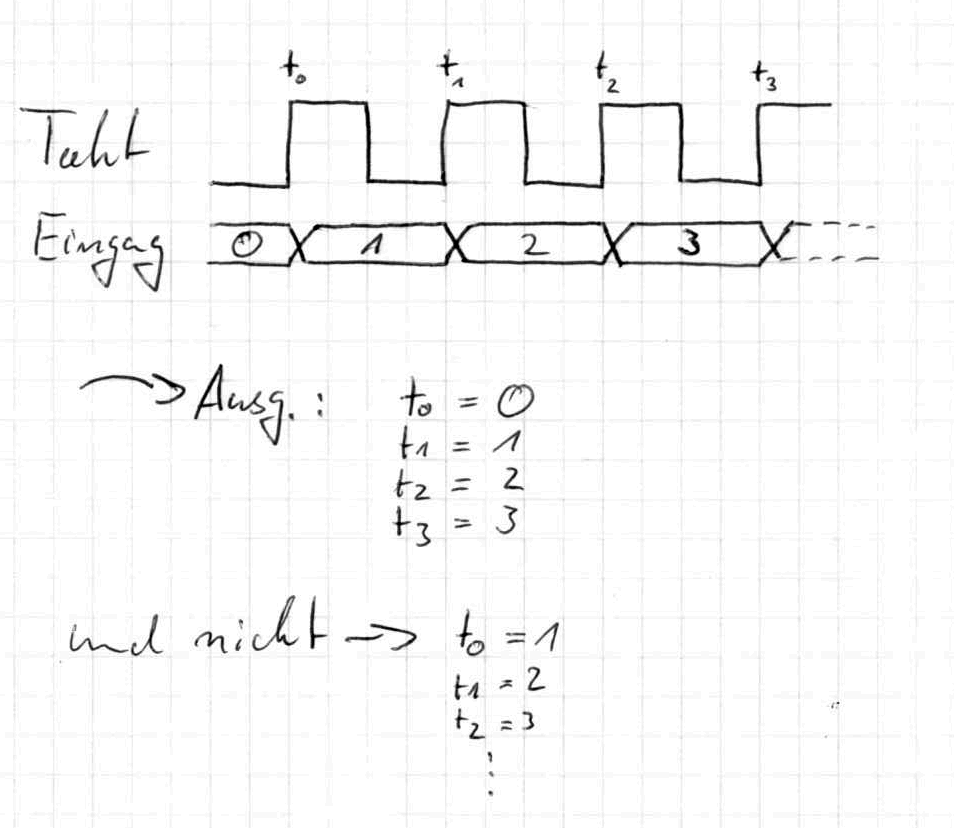 t₀ t₁ t₂ t₃
Takt
Eingag 0 1 2 3
→ Ausg.: t₀ = 0
t₁ = 1
t₂ = 2
t₃ = 3
und nicht → t₀ = 1
t₁ = 2
t₂ = 3
⋮